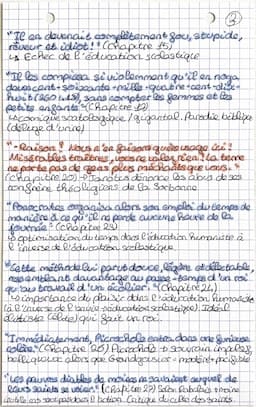 3
"Il en devenait complètement fou, stupide,
rêveur et idiot!" (Chapitre 15)
↳ Echec de l'éducation scolastique
"Il les compissa si violemment qu'il en noya
deux-cent-soixante-mille-quatre-cent-dix-
huit (260 418), sans compter les femmes et les
petits enfants" (Chapitre 17)
↳ comique scatologique / gigantal. Parodie biblique
(déluge d'urine)
"- Raison? Nous n'en faisons guère usage ici!
Misérables traîtres, vous ne valez rien! La terre
ne porte pas de gens plus méchants que vous."
(Chapitre 20) → Janotus dénonce les abus de ses
confrères théologiens de la Sorbonne
"Ponocrates organisa alors son emploi du temps de
manière à ce qu'il ne perde aucune heure de la
journée" (Chapitre 23)
↳ optimisation du temps dans l'éducation humaniste à
l'inverse de l'éducation scolastique.
"Cette méthode lui parut douce, légère et délectable,
ressemblant davantage au passe-temps d'un roi
qu'au travail d'un écolier." (Chapitre 24)
↳ importance du plaisir dans l'éducation humaniste
(à l'inverse de l'éducation scolastique) Idéal
qui fait un roi.
"Immédiatement, Picrochole entra dans une furieuse
colère." (Chapitre 26) Picrochole → souverain impulsif,
alors que Grandgousier = modéré + pacifiste
"Les pauvres diables de moines ne savaient auquel de
leurs saints se vouer." (Chapitre 27)